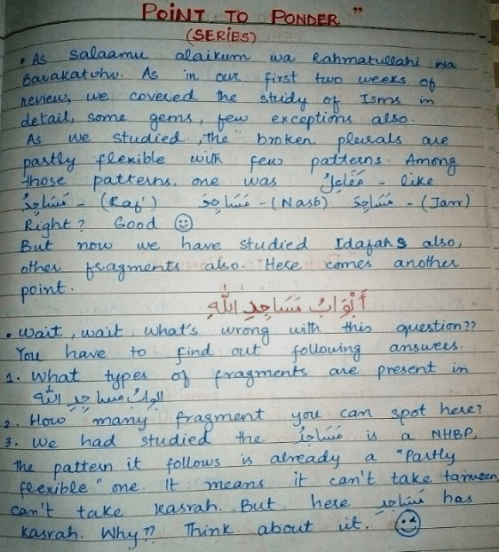 POINT TO PONDER"
(SERIES)
• As salaamu alaikum wa Rahmatullahi wa
Barakatuhu. As in our first two weeks of
review, we covered the study of Isms in
detail, some gems, few exceptions also.
As we studied, the "broken plurals are
partly flexible with few patterns. Among
those patterns, one was مَفَاعِلُ - like
مَسَاجِدُ - (Raf') مَسَاجِدَ - (Nasb) مَسَاجِدَ - (Jarr)
Right? Good
But now we have studied Idafahs also,
other fragments also. Here comes another
point.
أَبْوَابُ مَسَاجِدِ اللّٰهِ
• Wait, wait what's wrong with this question??
You have to find out following answers.
1. What types of fragments are present in
ابواب مساجد الله
2. How many fragment you can spot here?
3. We had studied the مَسَاجِدُ is a NHBP,
the pattern it follows is already a "Partly
flexible" one. It means it can't take tanween,
can't take kasrah. But here مَسَاجِدِ has
kasrah. Why?? Think about it.